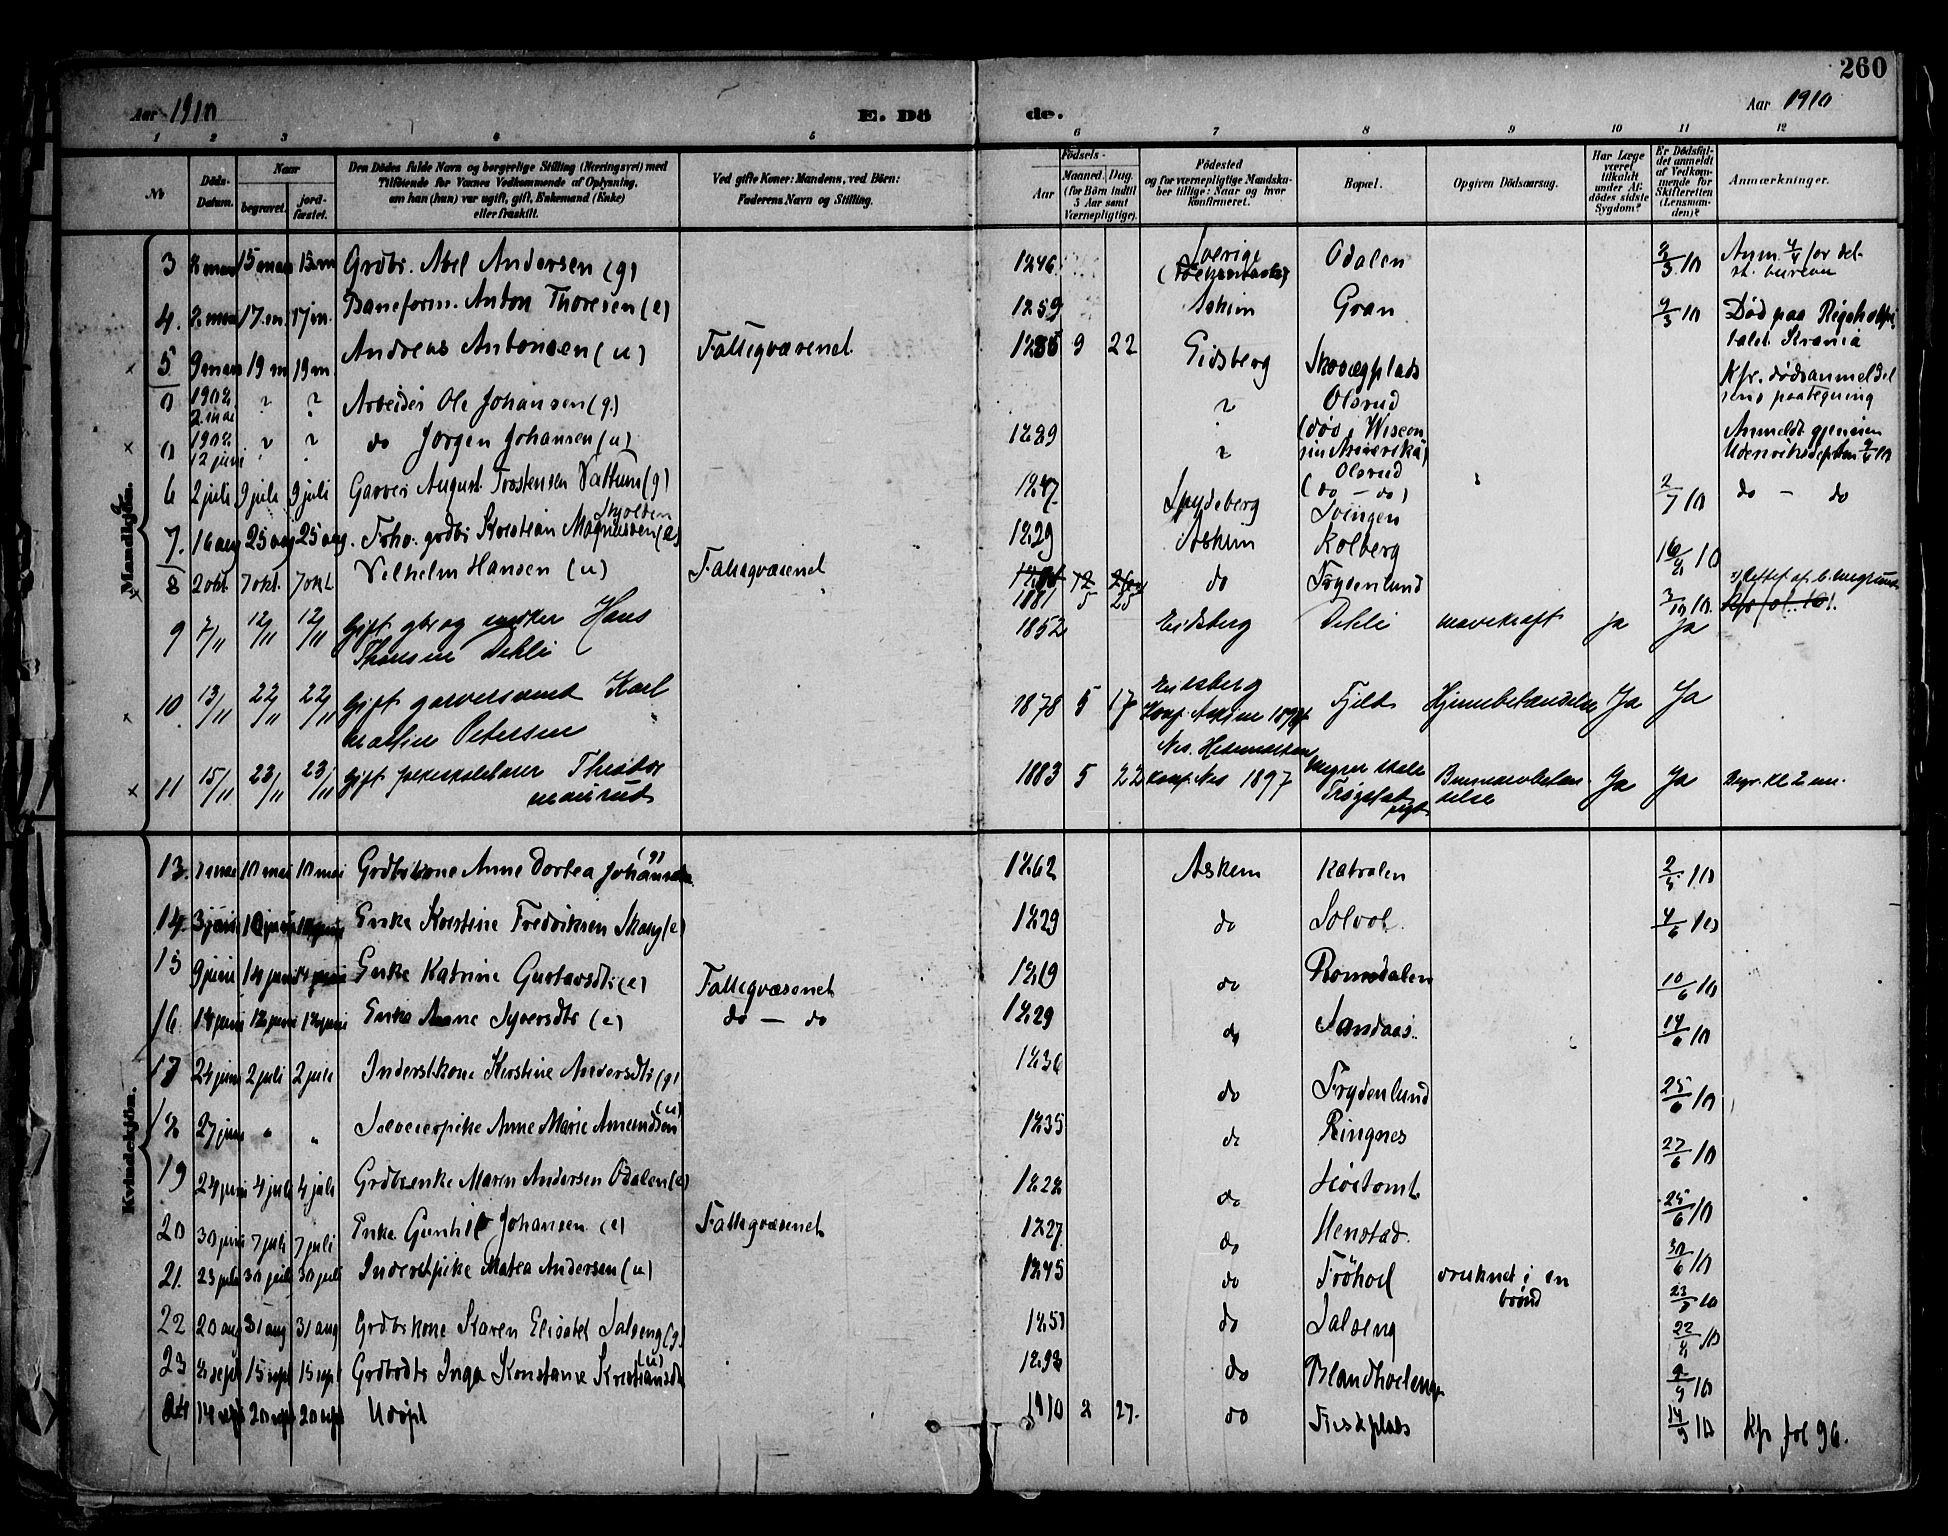 260
Aar 1910
E. Dö de.
Aar 1910
1 2 3 4 5 6 7 8 9 10 11 12
No
Döds-Datum.
Naar
begravet.
jordfæstet.
Den Dödes fulde Navn og borgerlige Stilling (Næringsvei) med
Tilföiende for Voxnes Vedkommende af Oplysning,
om han (hun) var ugift, gift, Enkemand (Enke)
eller fraskilt.
Ved gifte Koner: Mandens, ved Börn:
Faderens Navn og Stilling.
Födsels-
Aar
Maaned. Dag.
(for Börn indtil
5 Aar samt
Værnepligtige).
Födested
og for værnepligtige Mandskaber tillige: Naar og hvor
konfirmeret.
Bopæl.
Opgiven Dödsaarsag.
Har Læge
været
tilkaldt
under Afdödes sidste
Sygdom?
Er Dödsfaldet anmeldt
af Vedkommende for
Skifteretten
(Lensmanden)?
Anmærkninger.
Mandkjön.
3 8 mars 15 mars 15 m Grdbr. Abel Andersen (g) 1846 Sverige Odalen 8/3 10 Anm. 4/4 for det st. bureau
4. 8 mars 17. m. 17 m. Baneform. Anton Thoresen (e) 1859 Askim Gran 9/3 10 Död paa Rigshospitalet Krania
5 9 mars 19 m 19 m Andreas Antonsen (u) Fattigvæsenet 1885 9 22 Eidsberg Skovegplads Kfr. dødsanmeldelsens paategning
0 1908 2. mai ? ? Arbeider Ole Johansen (g.) ? Olsrud (død i Wisconsin Amerika) Anmeldt gjennem Udenriksdeptem
0 1908 12 juni ? ? do Jørgen Johansen (u) 1889 ? Olsrud (do - do) do - do
6 2 juli 9 juli 9 juli Garver August Torstensen Vattum (g) 1847 Spydeberg Svingen 2/7 10
7. 16 aug 25 aug 25 aug. Forhv. grdbr Kristian Magnussen Skjolden (e) 1829 Askim Kolberg 16/8 10
8 2 okt. 7 okt. 7 okt Vilhelm Hansen (u) Fattigvæsenet 1881 5 25 do Frydenlund 3/10 10.
9 7/11 12/11 12/11 Gift gbr og Hans Thorsen Dehli 1852 Eidsberg Dehli mavekræft ja ja
10. 13/11 22/11 22/11 Gift garversvend Karl Martin Petersen 1878 5 17 Eidsberg Konf. Askim Fjeld Hjernebetændelse Ja Ja
11 15/11 23/11 23/11 Gift Theodor 1883 5 22 Nes. Hedemarken konf. Nes 1897 Ja Ja
Kvindekjön.
13. 1 mai 10 mai 10 mai Grdbrkone Anne Dortea Johansen (g) 1862 Askim Katralen 2/5 10
14. 3 juni 10 juni 10 juni Enke Kristine Fredriksen Skaug (e) 1829 do Solvol. 4/6 10
15 9 juni 14 juni 14 juni Enke Katrine Gustavsdtr (e) Fattigvæsenet 1819 do Romsdalen 10/6 10
16. 14 juni 18 juni 18 juni Enke Anne Syversdtr (e) do - do 1829 do Sandaas. 14/6 10
17 24 juni 2 juli 2 juli Inderstkone Kristine Andersdtr (g) 1836 do Frydenlund 25/6 10
18 27 juni " " Anne Marie Amundsen (u) 1835 do Ringnes 27/6 10
19 24 juni 4 juli 4 juli Grdbrenke Maren Andersen Odalen (e) 1828 do Høitomt 25/6 10
20 30 juni 7 juli 7 juli Enke Gunhild Johansen (e) Fattigvæsenet 1827. do Henstad. 30/6 10
21. 23 juli 30 juli 30 juli Inderstpike Matea Andersen (u) 1845 do Frøhod druknet i en brønd 23/7 10
22 20 aug 31 aug 31 aug Grdbrkone Karen Elisabet Salseng (g) 1851 do Salseng 22/8 10
23 8 sept 15 sept 15 sept Grdbrdtr Inga Konstanse Kristiansdtr (u) 1893 do 9/9 10
24 14 sept 20 sept 20 sept Udøpt 1910 8 27. do 14/9 10 Kfr fol 96.